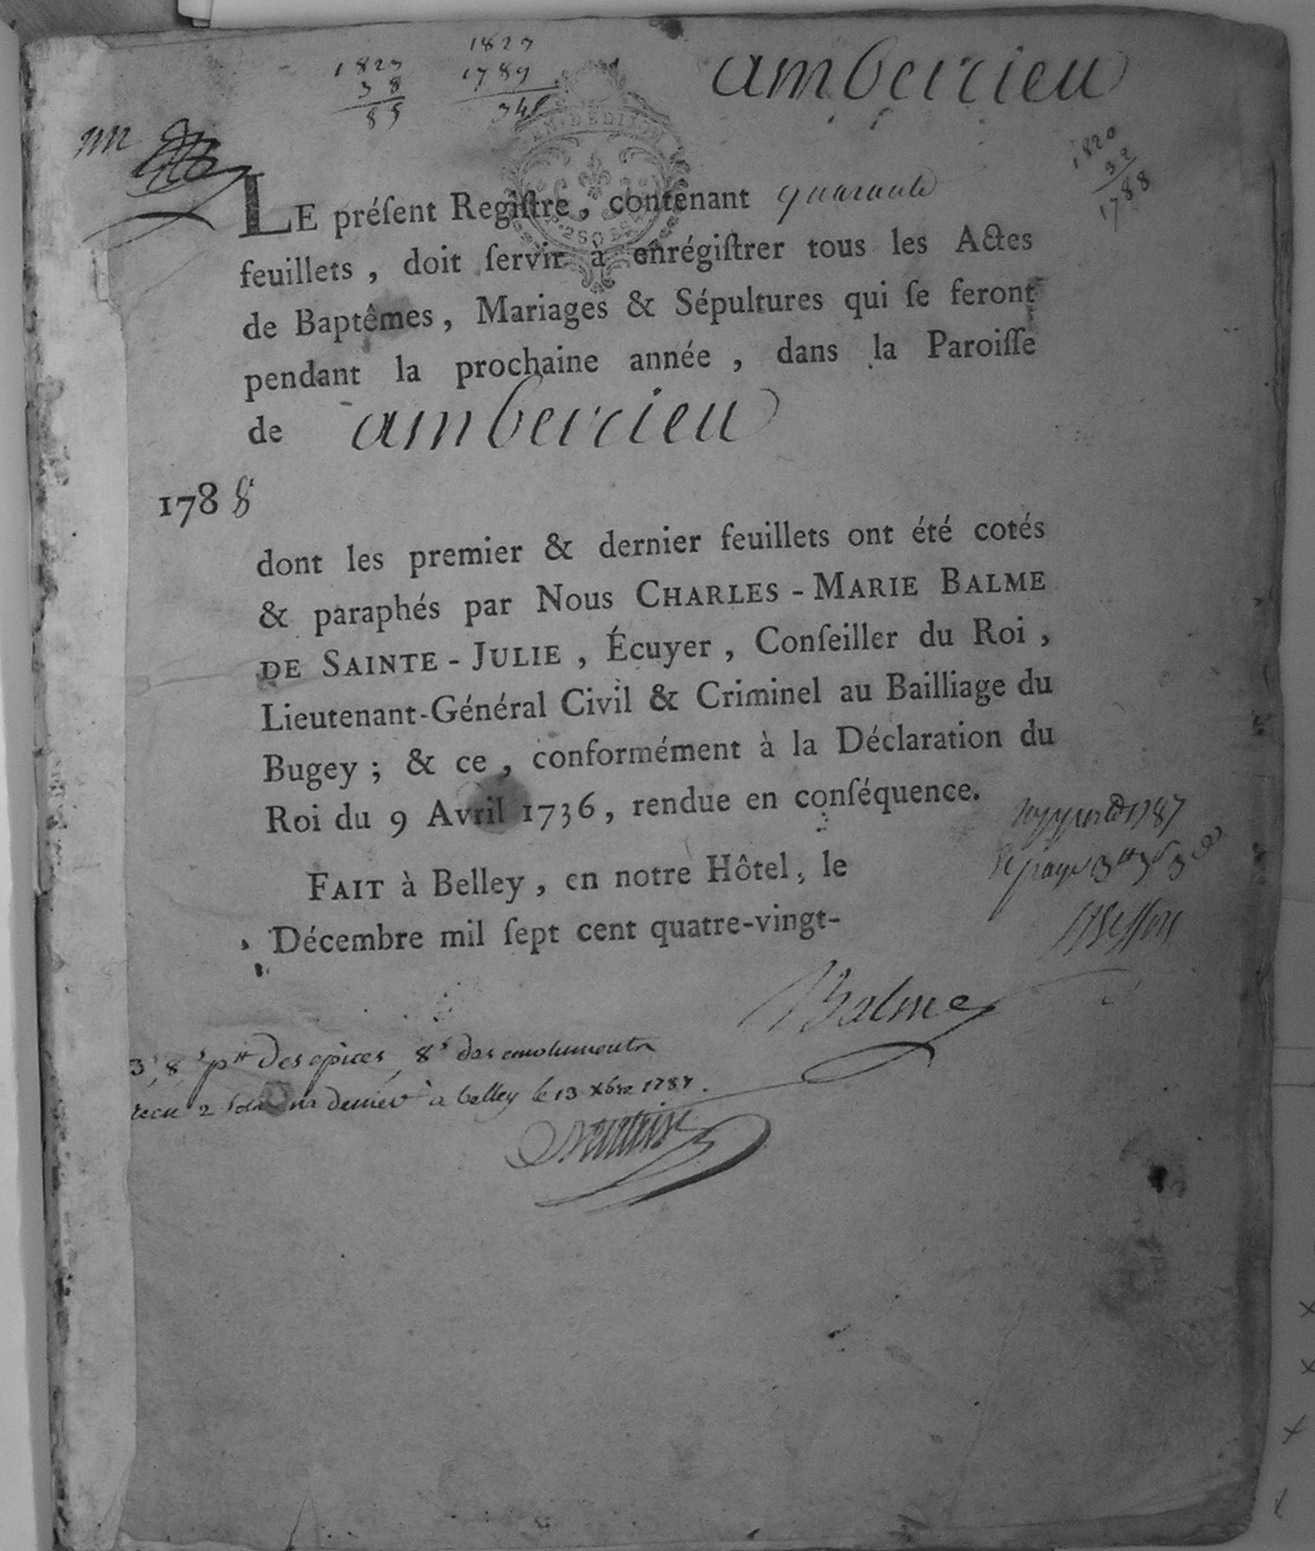 1827
1789
1827
38
85
amberieu
1820
32
1788
LE préſent Regiſtre, contenant quarante
feuillets, doit ſervir à enrégiſtrer tous les Actes
de Baptêmes, Mariages & Sépultures qui ſe feront
pendant la prochaine année, dans la Paroiſſe
de amberieu
1788
dont les premier & dernier feuillets ont été cotés
& paraphés par Nous CHARLES-MARIE BALME
DE SAINTE-JULIE, Écuyer, Conſeiller du Roi,
Lieutenant-Général Civil & Criminel au Bailliage du
Bugey; & ce, conformément à la Déclaration du
Roi du 9 Avril 1736, rendue en conſéquence.
FAIT à Belley, en notre Hôtel, le
Décembre mil ſept cent quatre-vingt-
1787
Balme
3 8 des épices 8s des emoluments
recu 2 à belley le 13 xbre 1787.